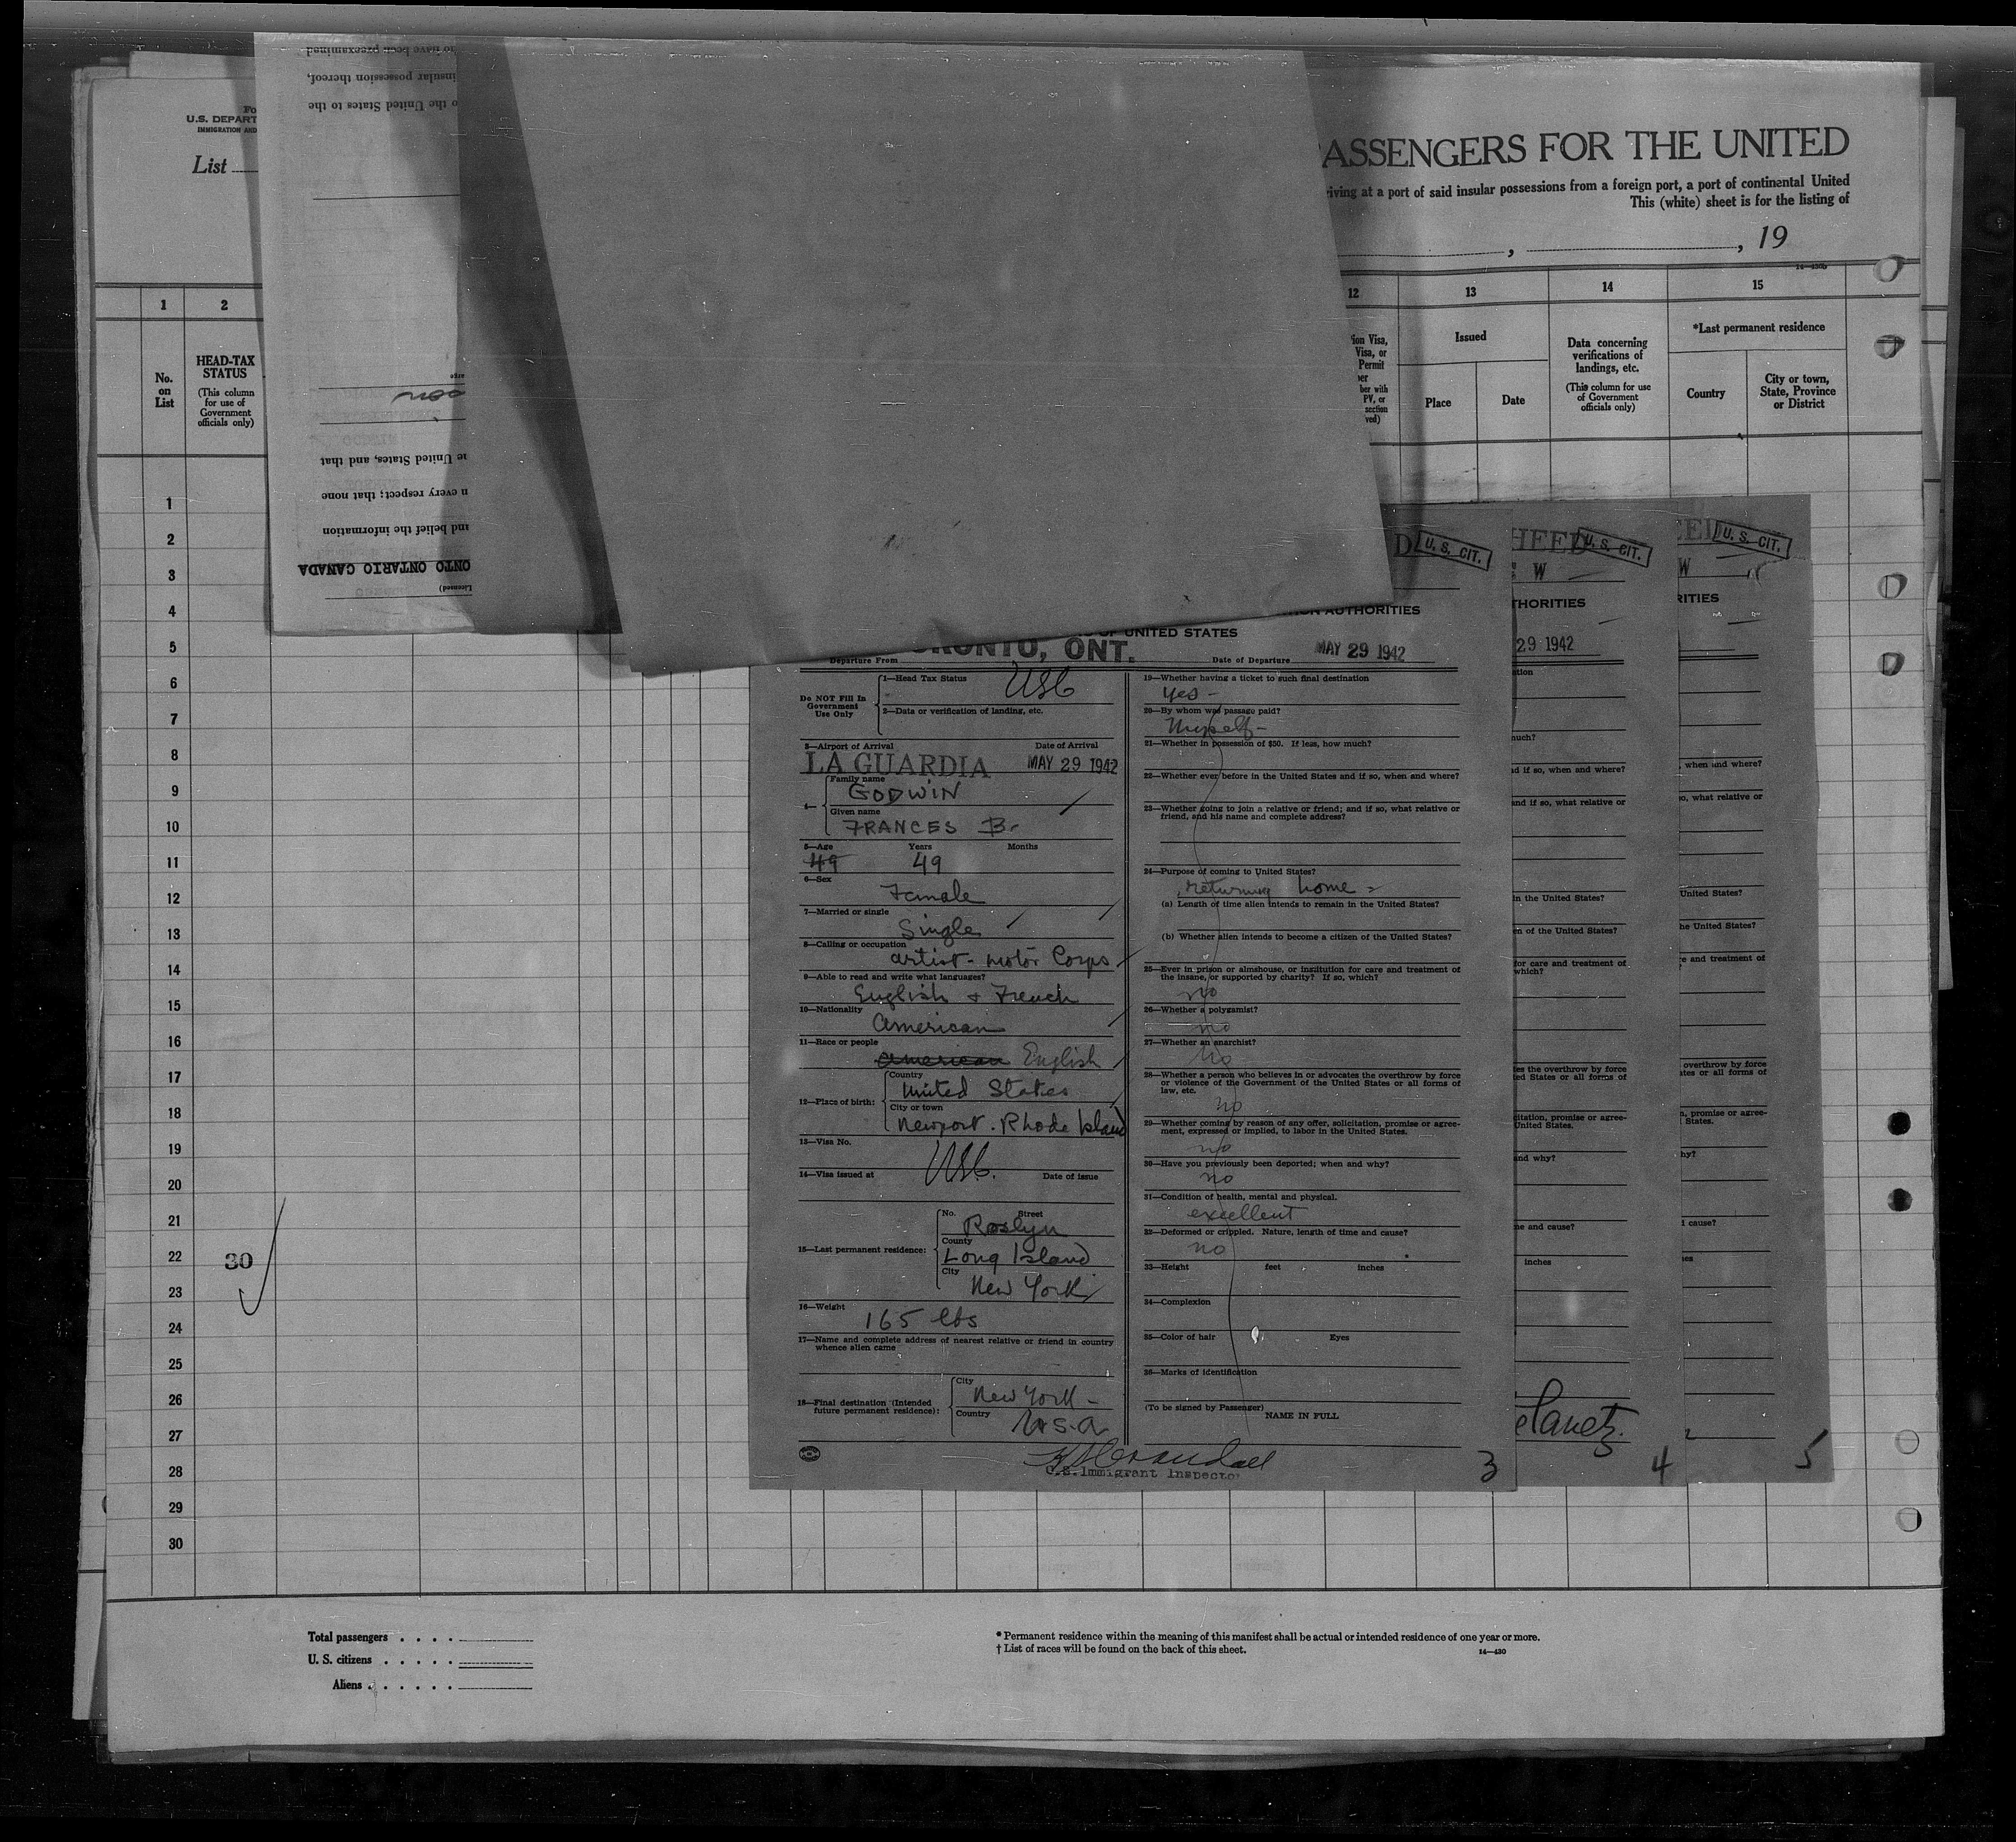 Fo
U.S. DEPART
IMMIGRATION AND
List
to have been preexamined
insular possession thereof,
to the United States to the
n every respect; that none
and belief the information
ONTO ONTARIO CANADA
PASSENGERS FOR THE UNITED
riving at a port of said insular possessions from a foreign port, a port of continental United
This (white) sheet is for the listing of
, , 19
1 2 12 13 14 15
No.
on
List
HEAD-TAX
STATUS
(This column
for use of
Government
officials only)
ion Visa,
Visa, or
Permit
ber with
PV, or
section
ved)
Issued
Place Date
Data concerning
verifications of
landings, etc.
(This column for use
of Government
officials only)
*Last permanent residence
Country
City or town,
State, Province
or District
1
2
3
4
5
6
7
8
9
10
11
12
13
14
15
16
17
18
19
20
21
22
23
24
25
26
27
28
29
30
30
U. S. CIT.
ION AUTHORITIES
OF UNITED STATES
Departure From RONTO, ONT.
Date of Departure MAY 29 1942
Do NOT Fill In
Government
Use Only
1—Head Tax Status USC
2—Data or verification of landing, etc.
3—Airport of Arrival Date of Arrival
LA GUARDIA MAY 29 1942
4—
Family name
GODWIN
Given name
FRANCES B.
5—Age Years Months
49 49
6—Sex
Female
7—Married or single
Single
8—Calling or occupation
artist - motor Corps
9—Able to read and write what languages?
English + French
10—Nationality
American
11—Race or people
American English
12—Place of birth:
Country
United States
City or town
Newport. Rhode Island
13—Visa No.
USC.
14—Visa issued at Date of issue
15—Last permanent residence:
No. Street
Roslyn
County
Long Island
City
New York
16—Weight
165 lbs
17—Name and complete address of nearest relative or friend in country
whence alien came
18—Final destination (Intended
future permanent residence):
City
New York -
Country
U.S.A.
19—Whether having a ticket to such final destination
yes -
20—By whom was passage paid?
Myself -
21—Whether in possession of $50. If less, how much?
22—Whether ever before in the United States and if so, when and where?
23—Whether going to join a relative or friend; and if so, what relative or
friend, and his name and complete address?
24—Purpose of coming to United States?
returning home -
(a) Length of time alien intends to remain in the United States?
(b) Whether alien intends to become a citizen of the United States?
25—Ever in prison or almshouse, or institution for care and treatment of
the insane, or supported by charity? If so, which?
no
26—Whether a polygamist?
no
27—Whether an anarchist?
No
28—Whether a person who believes in or advocates the overthrow by force
or violence of the Government of the United States or all forms of
law, etc.
no
29—Whether coming by reason of any offer, solicitation, promise or agree-
ment, expressed or implied, to labor in the United States.
no
30—Have you previously been deported; when and why?
no
31—Condition of health, mental and physical.
excellent
32—Deformed or crippled. Nature, length of time and cause?
no
33—Height feet inches
34—Complexion
35—Color of hair Eyes
36—Marks of identification
(To be signed by Passenger)
NAME IN FULL
U.S. Immigrant Inspector
3
U. S. CIT.
W
THORITIES
29 1942
ation
much?
nd if so, when and where?
and if so, what relative or
in the United States?
en of the United States?
for care and treatment of
which?
es the overthrow by force
ted States or all forms of
citation, promise or agree-
United States.
and why?
me and cause?
inches
4
U. S. CIT.
W
RITIES
when and where?
so, what relative or
United States?
he United States?
e and treatment of
overthrow by force
ates or all forms of
n, promise or agree-
States.
hy?
cause?
es
5
Total passengers
U. S. citizens
Aliens
* Permanent residence within the meaning of this manifest shall be actual or intended residence of one year or more.
† List of races will be found on the back of this sheet.
14—430